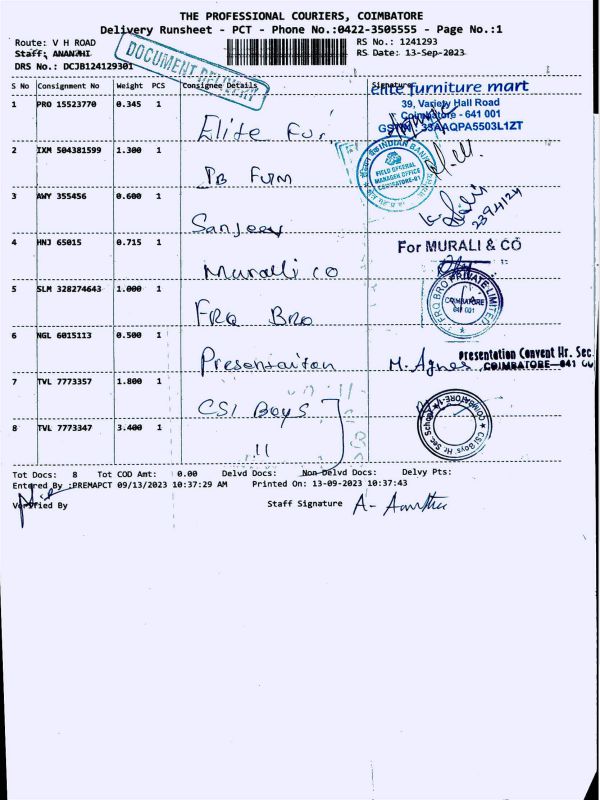 THE PROFESSIONAL COURIERS, COIMBATORE
Delivery Runsheet - PCT - Phone No.:0422-3505555 - Page No.:1
Route: V H ROAD
RS No.: 1241293
Staff: ANANTHI
RS Date: 13-Sep-2023
DRS No.: DCJB124129301
DOCUMENT DELIVERY
S No Consignment No Weight PCS Consignee Details Signature
elite furniture mart
39, Variety Hall Road
Coimbatore - 641 001
GSTIN 33AAQPA5503L1ZT
1 PRO 15523770 0.345 1 Elite Fur
2 IXM 504381599 1.300 1
INDIAN BANK
FIELD GENERAL
MANAGER OFFICE
COIMBATORE-01
3 AWY 355456 0.600 1 Sanjeev
4 HNJ 65015 0.715 1 Muralli co
For MURALI & CO
5 SLM 328274643 1.000 1 FRQ Bro
FRQ BRO PRIVATE LIMITED
COIMBATORE
641 001
6 NGL 6015113 0.500 1 Presensaiton M. Agnes
Presentation Convent Hr. Sec.
COIMBATORE-641 001
7 TVL 7773357 1.800 1 CSI Boys
CSI Boys Hr. Sec. School
COIMBATORE-1
8 TVL 7773347 3.400 1 "
Tot Docs: 8 Tot COD Amt: 0.00 Delvd Docs: Non Delvd Docs: Delvy Pts:
Entered By :PREMAPCT 09/13/2023 10:37:29 AM Printed On: 13-09-2023 10:37:43
Verified By
Staff Signature A-